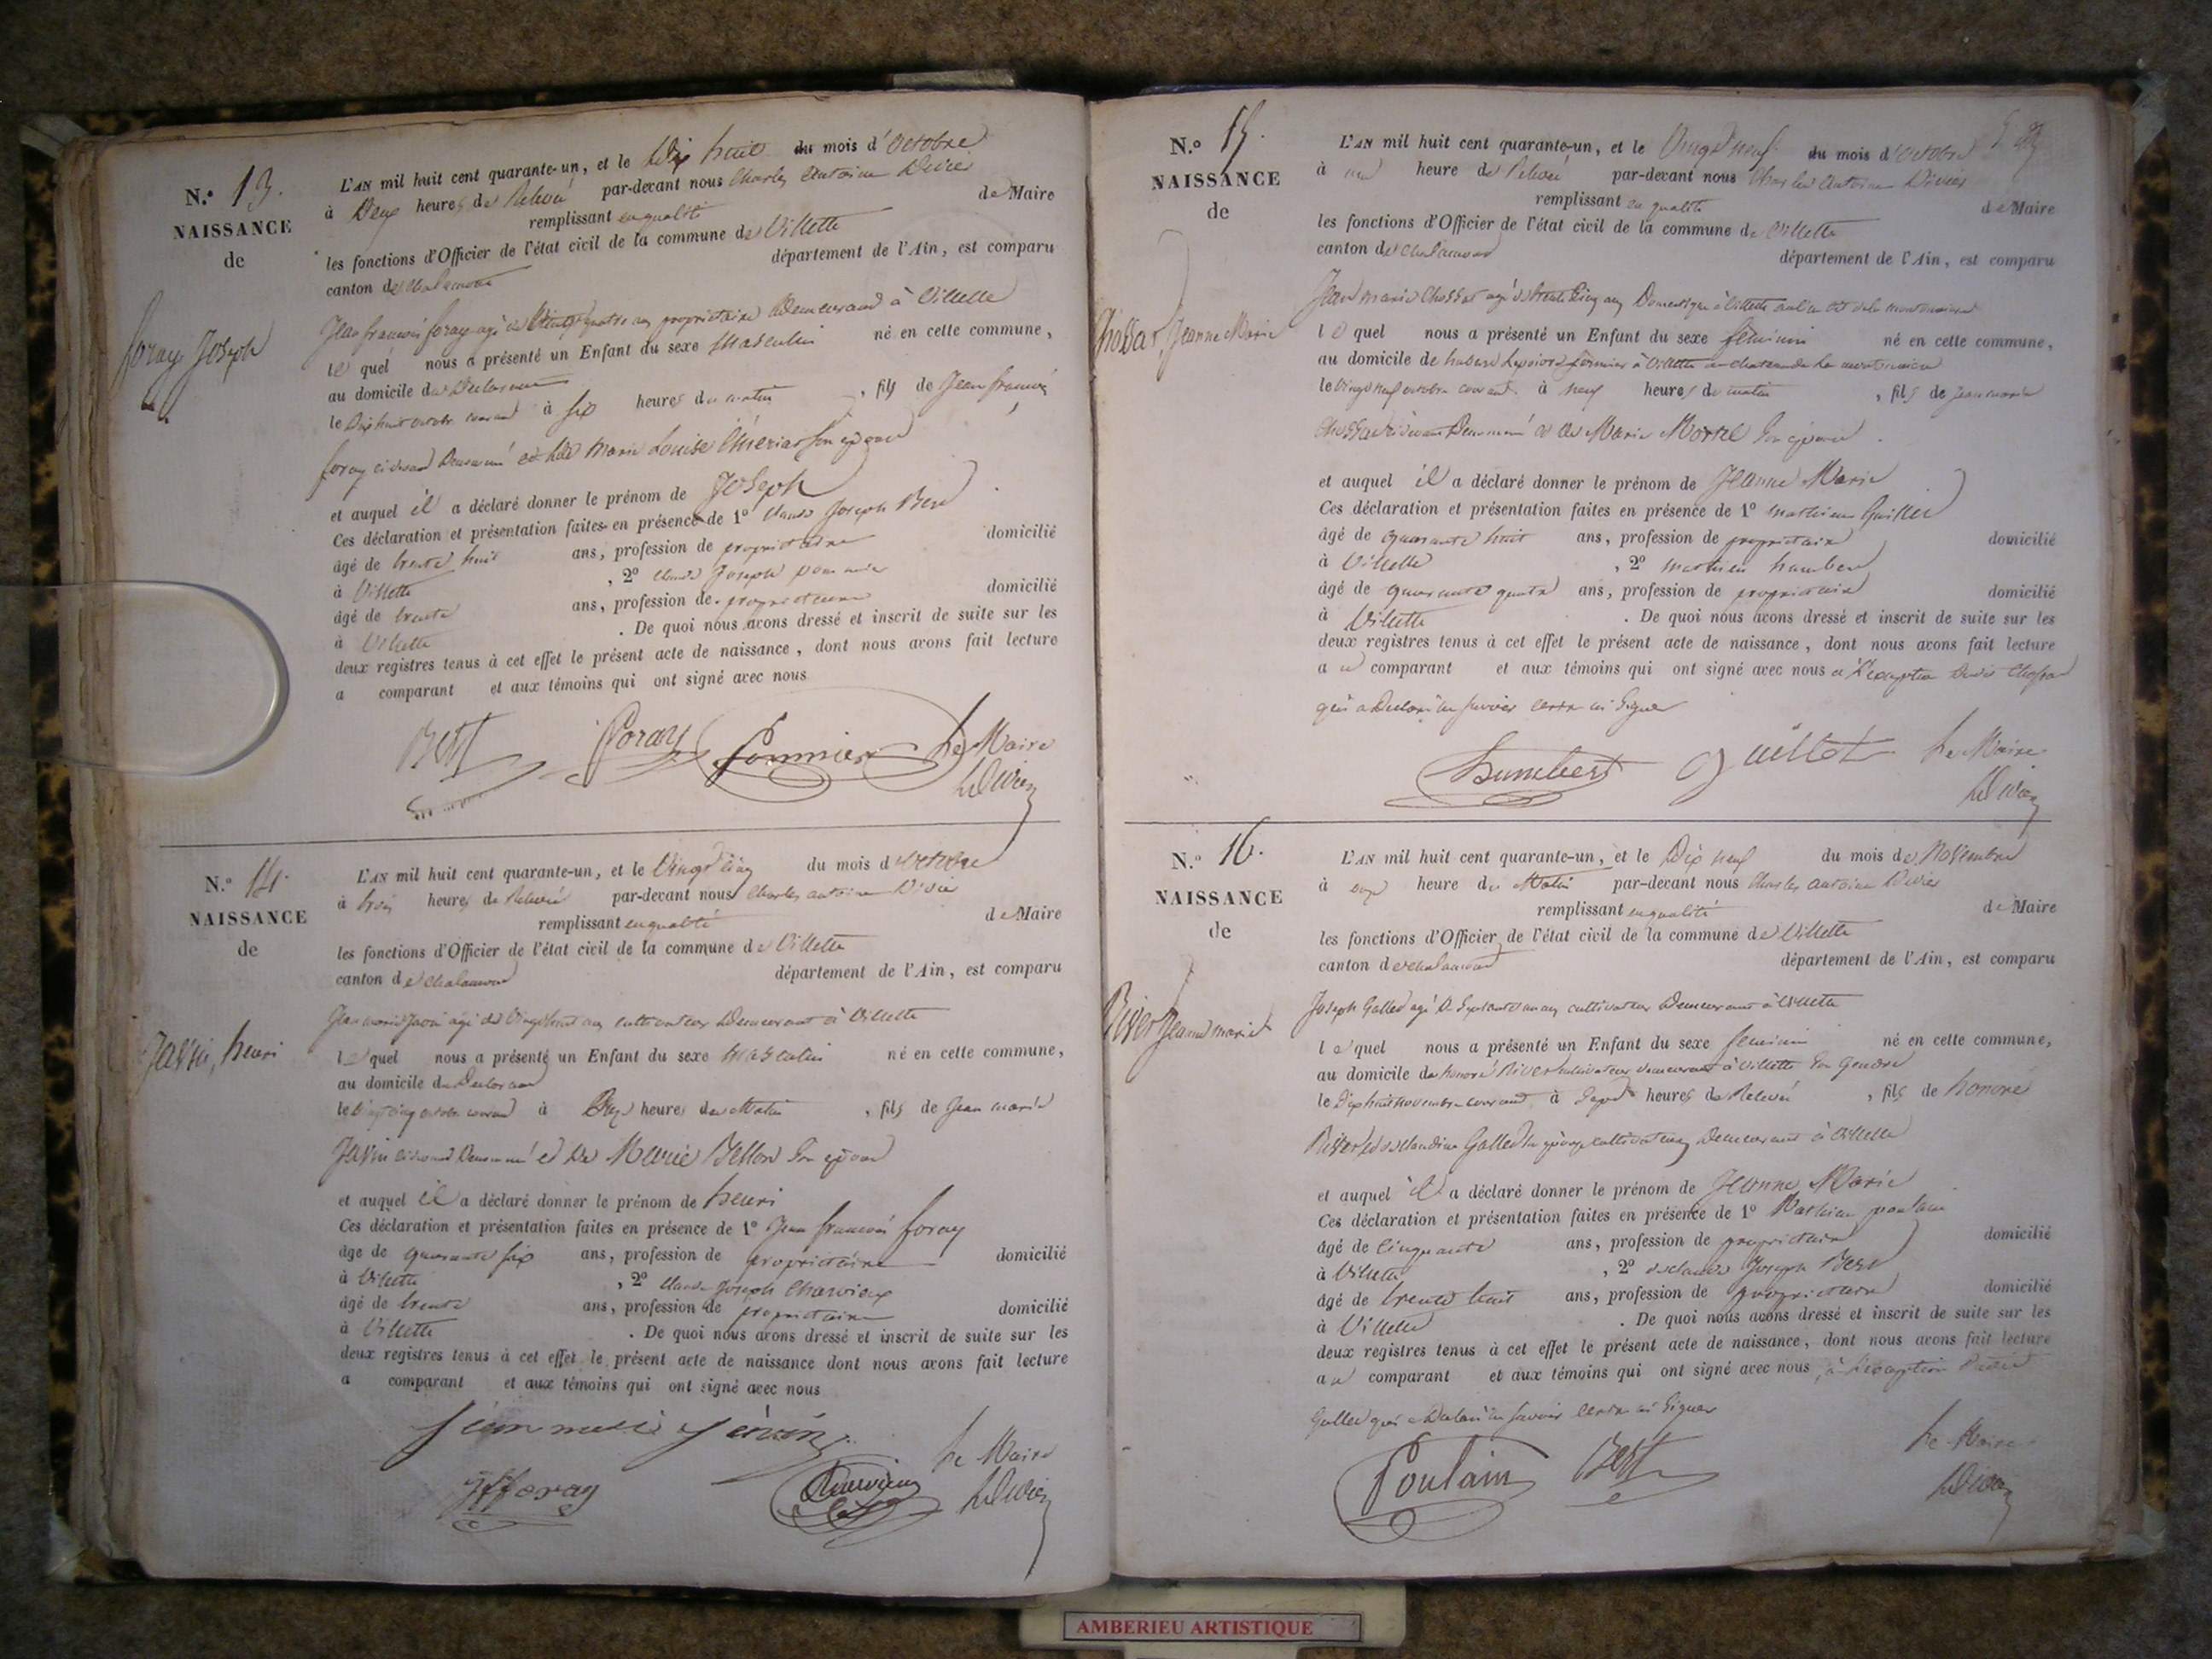 N.º 13.
NAISSANCE
de
foray Joseph
L'AN mil huit cent quarante-un, et le Dix huit du mois d'Octobre
à Deux heures de Relevé par-devant nous Charles Antoine Divier
remplissant en qualité de Maire
les fonctions d'Officier de l'état civil de la commune de Villette
canton de Chalamont département de l'Ain, est comparu
Jean françois foray agé de quatre ans propriétaire Demeurand à Villette
le quel nous a présenté un Enfant du sexe Masculin né en cette commune,
au domicile du Declarant
le Dix huit octobre courant à six heures du matin, fils de Jean françois
foray cidevant Denommé et de Marie Louise son epouse
et auquel il a déclaré donner le prénom de Joseph
Ces déclaration et présentation faites en présence de 1º Claude Joseph Best
âgé de trente huit ans, profession de propriétaire domicilié
à Villette, 2º Claude Joseph pommier
âgé de trente ans, profession de propriétaire domicilié
à Villette. De quoi nous avons dressé et inscrit de suite sur les
deux registres tenus à cet effet le présent acte de naissance, dont nous avons fait lecture
a comparant et aux témoins qui ont signé avec nous
Best foray Pommier Le Maire
Divier
N.º 14.
NAISSANCE
de
Janin, henri
L'AN mil huit cent quarante-un, et le Vingt Cinq du mois d'Octobre
à trois heures de Relevé par-devant nous Charles antoine Divier
remplissant en qualité de Maire
les fonctions d'Officier de l'état civil de la commune de Villette
canton de Chalamont département de l'Ain, est comparu
Jean marie Janin agé de Vingt huit ans cultivateur Demeurant à Villette
le quel nous a présenté un Enfant du sexe Masculin né en cette commune,
au domicile du Declarant
le Vingt cinq octobre courant à heures du Matin, fils de Jean marie
Janin cidevant Denommé et De Marie Bellon Son epouse
et auquel il a déclaré donner le prénom de henri
Ces déclaration et présentation faites en présence de 1º Jean francois foray
âgé de quarante six ans, profession de propriétaire domicilié
à Villette, 2º Claude Joseph Charvieux
âgé de trente ans, profession de propriétaire domicilié
à Villette. De quoi nous avons dressé et inscrit de suite sur les
deux registres tenus à cet effet le présent acte de naissance dont nous avons fait lecture
a comparant et aux témoins qui ont signé avec nous
jean marie janin
Le Maire
jfforay Charvieux Divier
N.º 15.
NAISSANCE
de
Chossat, Jeanne Marie
L'AN mil huit cent quarante-un, et le Vingt neuf du mois d'octobre
à une heure de Relevé par-devant nous Charles Antoine Divier
remplissant en qualité de Maire
les fonctions d'Officier de l'état civil de la commune de Villette
canton de Chalamont département de l'Ain, est comparu
Jean marie Chossat agé de trente Cinq ans Domestique à Villette
le quel nous a présenté un Enfant du sexe féminin né en cette commune,
au domicile de fermier à Villette au chateau de la
le Vingt neuf octobre courant à neuf heures du matin, fils de Jean marie
Chossat cidevant Denommé et de Marie Morel Son epouse.
et auquel il a déclaré donner le prénom de Jeanne Marie
Ces déclaration et présentation faites en présence de 1º Mathieu Guillet
âgé de quarante huit ans, profession de propriétaire domicilié
à Villette, 2º mathieu humbert
âgé de quarante quatre ans, profession de propriétaire domicilié
à Villette. De quoi nous avons dressé et inscrit de suite sur les
deux registres tenus à cet effet le présent acte de naissance, dont nous avons fait lecture
au comparant et aux témoins qui ont signé avec nous à l'exception Dudit Chossat
qui a Declaré ne savoir ecrire ni Signer
humbert guillet Le Maire
Divier
N.º 16.
NAISSANCE
de
River Jeanne marie
L'AN mil huit cent quarante-un, et le Dix neuf du mois de Novembre
à onze heure du Matin par-devant nous Charles antoine Divier
remplissant en qualité de Maire
les fonctions d'Officier de l'état civil de la commune de Villette
canton de Chalamont département de l'Ain, est comparu
Joseph Gallet agé De Septante un ans cultivateur Demeurant à Villette
le quel nous a présenté un Enfant du sexe féminin né en cette commune,
au domicile de honoré River cultivateur demeurant à Villette Son gendre
le Dix huit novembre courant à Sept heures de Relevé, fils de honoré
River et de claudine Gallet Son epouse cultivateurs Demeurant à Villette
et auquel il a déclaré donner le prénom de Jeanne Marie
Ces déclaration et présentation faites en présence de 1º Mathieu poulain
âgé de Cinquante ans, profession de propriétaire domicilié
à Villette, 2º de claude Joseph Best
âgé de trente huit ans, profession de propriétaire domicilié
à Villette. De quoi nous avons dressé et inscrit de suite sur les
deux registres tenus à cet effet le présent acte de naissance, dont nous avons fait lecture
au comparant et aux témoins qui ont signé avec nous, à l'exception Dudit
Gallet qui a Declaré ne savoir ecrire ni Signer
Poulain Best Le Maire
Divier
AMBERIEU ARTISTIQUE